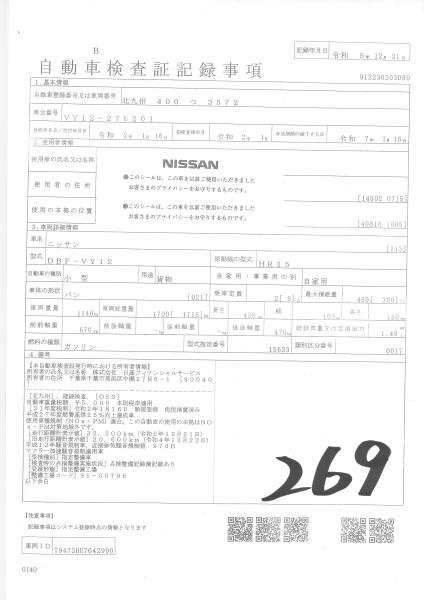 B
記録年月日 令和 5年 12月 21日
自動車検査証記録事項
912230303050
1.基本情報
自動車登録番号又は車両番号 北九州 400 つ 3572
車台番号 VY12-275201
令和 2年 1月 16日 初度登録年月 令和 2年 1月 有効期間の満了する日 令和 7年 1月 15日
2.使用者情報
使用者の氏名又は名称
NISSAN
●このシールは、この車を以前ご使用いただきました
お客さまのプライバシーをお守りするものです。
使用者の住所
[14502 0715]
●このシールは、この車を以前ご使用いただきました
お客さまのプライバシーをお守りするものです。
使用の本拠の位置
[40816 1065]
3.車両詳細情報
車名 ニッサン [215]
型式 DBF-VY12 原動機の型式 HR15
自動車の種別 小型 用途 貨物 自家用・事業用の別 自家用
車体の形状 バン [021] 乗車定員 2[ 5]人 最大積載量 450[ 300]kg
車両重量 1140kg 車両総重量 1700[ 1715]kg 長さ 439cm 幅 169cm 高さ 150cm
前前軸重 670kg 前後軸重 -kg 後前軸重 -kg 後後軸重 470kg 総排気量又は定格出力 1.49
燃料の種類 ガソリン 型式指定番号 15633 類別区分番号 0017
4.備考
[本自動車検査証発行時における所有者情報]
所有者の氏名又は名称 株式会社 日産フィナンシャルサービス
所有者の住所 千葉県千葉市美浜区中瀬2丁目6-1 [90040
]
[北九州]、継続検査、[OSS]
自動車重量税額 ¥5,000 本則税率適用
[31年度税制]令和2年1月16日 新規登録 免税措置済み
平成27年度燃費基準25%向上達成車
使用車種規制(NOx・PM)適合、この自動車の使用の本拠はNO
x・PM対策地域外です。
[走行距離計表示値]32,200km(令和5年12月21日)
[旧走行距離計表示値]20,600km(令和4年12月22日)
平成12年騒音規制車、近接排気騒音規制値 97dB
マフラー加速騒音規制適用車
[受検種別]指定整備車
[検査時の点検整備実施状況]点検整備記録簿記載あり
[受検形態]指定整備工場
[整備工場コード]81-00796
以下余白
269
【注意事項】
記録事項はシステム登録時点の情報となります
車両ID T9473HU7642990
0140